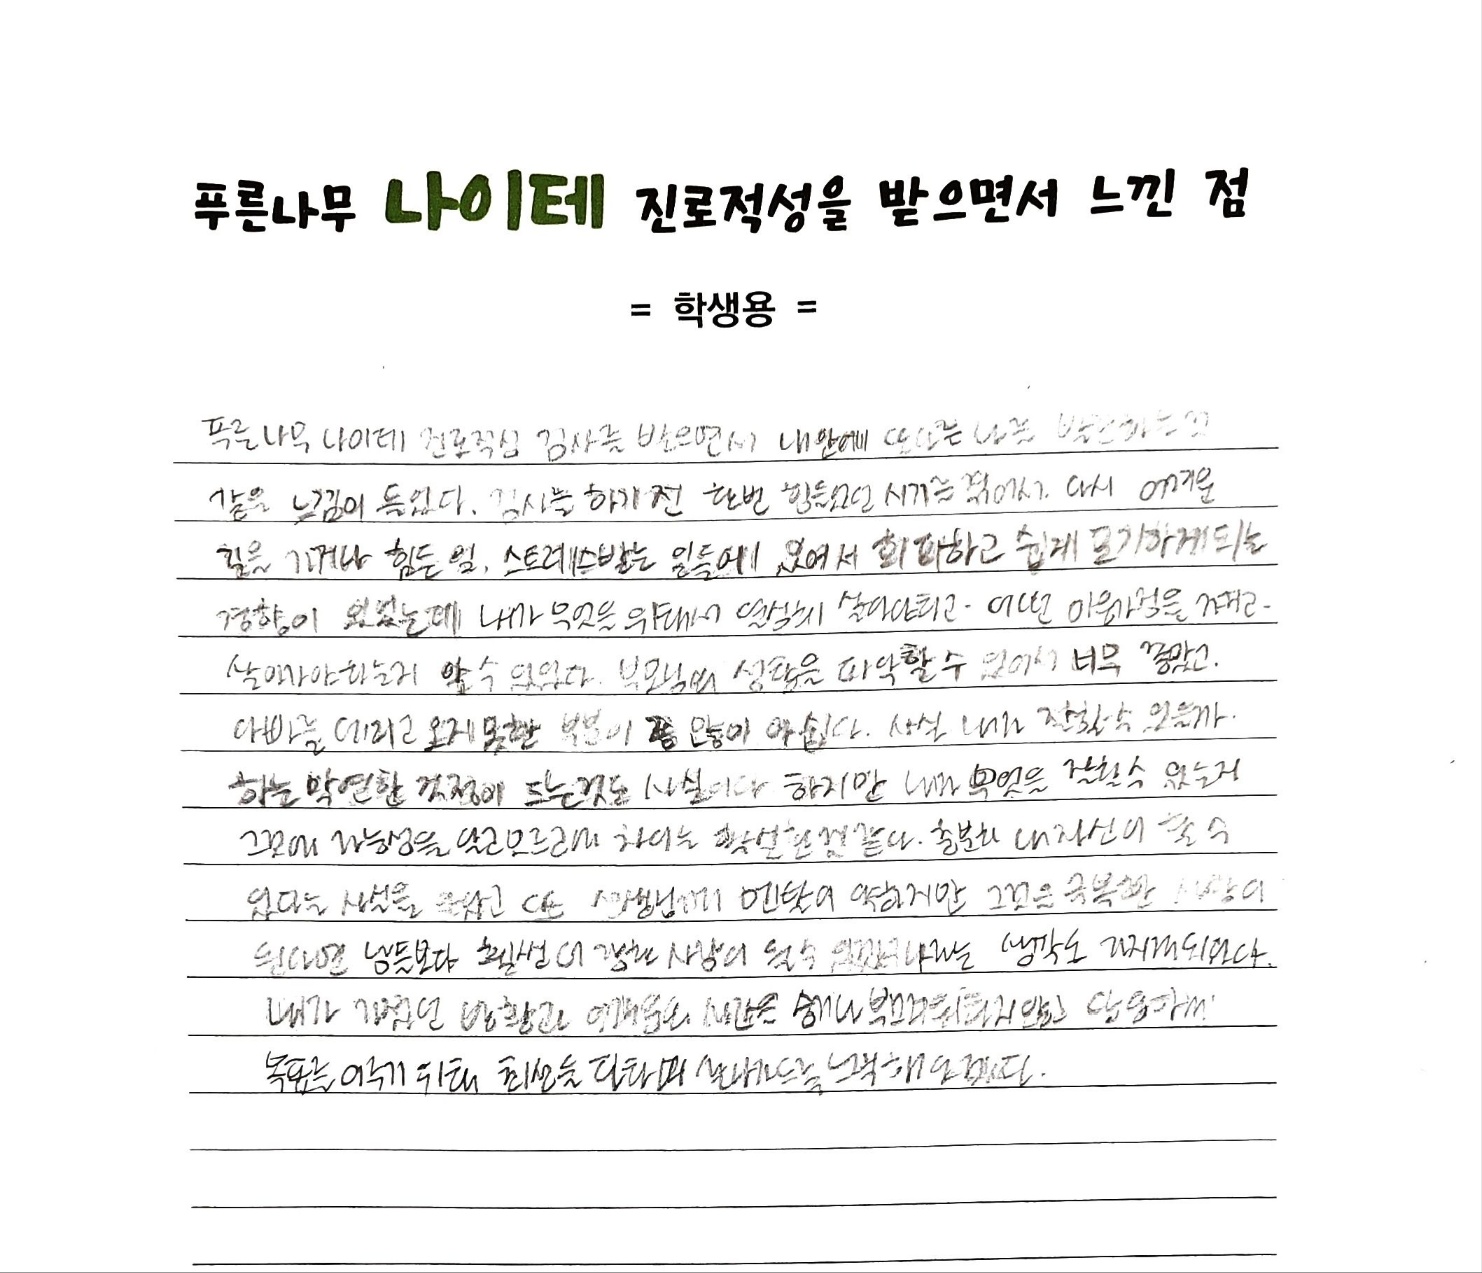 푸른나무 나이테 진로적성을 받으면서 느낀 점
= 학생용 =
푸른나무 나이테 진로적성 검사를 받으면서 내안에 또다른 나를
같은 느낌이 들었다. 검사를 하기 전 한번 힘들었던 시기를 겪어서. 다시 어려운
힘든 일. 스트레스받는 일들에 있어서 회피하고 쉽게 포기하게되는
경향이 있었는데 내가 무엇을 위해서 열심히 살아야되고. 어떤 마음가짐을
살아가야하는지 알 수 있었다. 부모님의 성향을 파악할 수 있어서 너무 좋았고.
아빠를 데리고 오지 못한 부분이 좀 많이 아쉽다. 사실 내가 잘할수 있을까.
하는 막연한 걱정이 드는것도 사실이다 하지만 내가 무엇을 잘할수 있는지
그것에 가능성을 알고모르고에 차이는 확실한것 같다. 충분히 내자신이 할 수
있다는 사실을 알았고 또 선생님께서 멘탈이 약하지만 그것을 극복한 사람이
된다면 남들보다 훨씬 더 강한 사람이 될수 생각도
내가 겪었던 방황과 어려움의 시간은
목표를 위해 최선을 노력해보겠다.